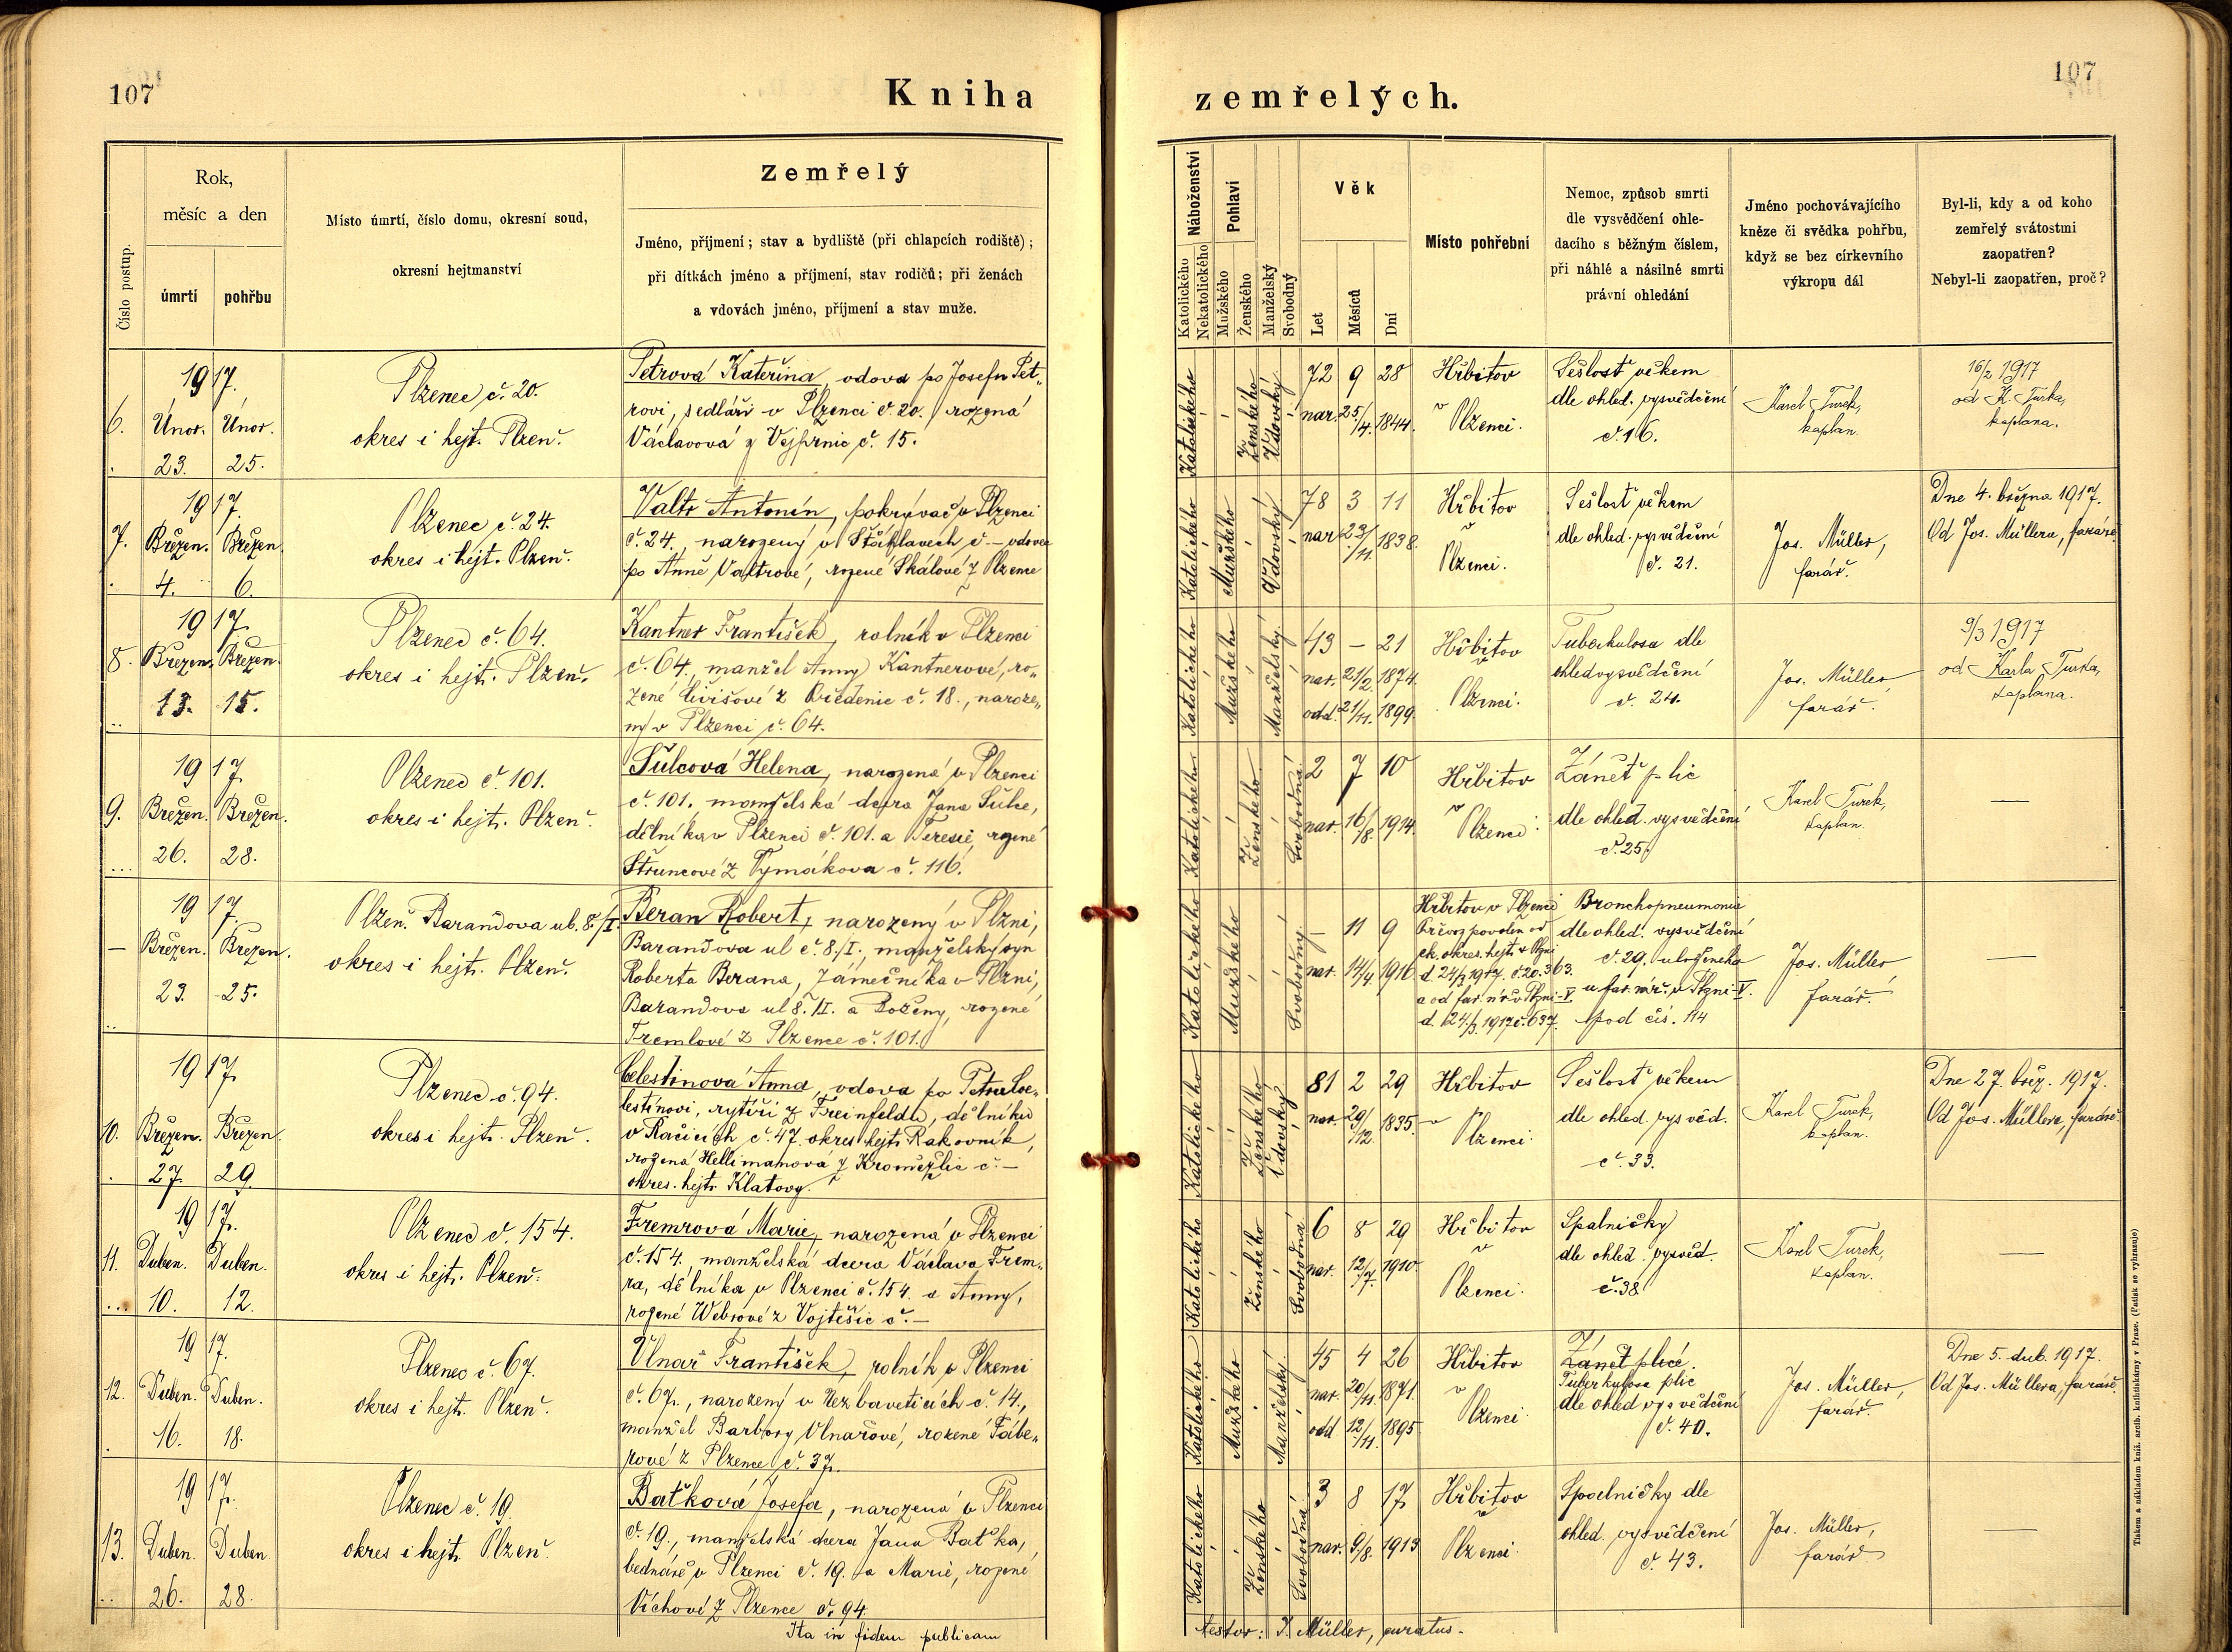 107
Kniha
zemřelých.
107
Číslo postup.
Rok,
měsíc a den
úmrtí
pohřbu
Místo úmrtí, číslo domu, okresní soud,
okresní hejtmanství
Zemřelý
Jméno, příjmení; stav a bydliště (při chlapcích rodiště);
při dítkách jméno a příjmení, stav rodičů; při ženách
a vdovách jméno, příjmení a stav muže.
Náboženství
Katolického
Nekatolického
Pohlaví
Mužského
Ženského
Manželský
Svobodný
Věk
Let
Měsíců
Dní
Místo pohřební
Nemoc, způsob smrti
dle vysvědčení ohle-
dacího s běžným číslem,
při náhlé a násilné smrti
právní ohledání
Jméno pochovávajícího
kněze či svědka pohřbu,
když se bez církevního
výkropu dál
Byl-li, kdy a od koho
zemřelý svátostmi
zaopatřen?
Nebyl-li zaopatřen, proč?
1917.
6. Únor. Únor.
23. 25.
Plzenec č. 20.
okres i hejt. Plzeň.
Petrová Kateřina, vdova po Josefu Pet„
rovi, sedláři v Plzenci č. 20. rozená
Václavová z Vejprnic č. 15.
Katolického
Ženského
Vdovský
72 9 28
nar. 25/4. 1844.
Hřbitov
v
Plzenci.
Sešlost věkem
dle ohled. vysvědčení
č. 16.
Karel Turek,
kaplan.
16/2 1917
od K. Turka,
kaplana.
1917.
7. Březen. Březen.
4. 6.
Plzenec č. 24.
okres i hejt. Plzeň.
Valtr Antonín, pokrývač v Plzenci
č. 24., narozený v Šťáhlavech č. – vdovec
po Anně Valtrové, rozené Skálové z Plzence
Katolického
Mužského
Vdovský
78 3 11
nar. 23/11. 1838.
Hřbitov
v
Plzenci.
Sešlost věkem
dle ohled. vysvědčení
č. 21.
Jos. Müller,
farář.
Dne 4. března 1917.
Od Jos. Müllera, faráře.
1917.
8. Březen. Březen.
13. 15.
Plzenec č. 64.
okres i hejt. Plzeň.
Kantner František, rolník v Plzenci
č. 64., manžel Anny Kantnerové, ro„
zené Čivišové z č. 18., naroze„
ný v Plzenci č. 64.
Katolického
Mužského
Manželský.
43 – 21
nar. 21/2. 1874.
odd. 21/11. 1899.
Hřbitov
v
Plzenci.
Tuberkulosa dle
ohled vysvědčení
č. 24.
Jos. Müller
farář.
9/3 1917
od Karla Turka,
kaplana.
1917
9. Březen. Březen.
26. 28.
Plzenec č. 101.
okres i hejt. Plzeň.
Šulcová Helena, narozená v Plzenci
č. 101. manželská dcera Jana Šulce,
dělníka v Plzenci č. 101. a Teresie, rozené
Štruncové z Tymákova č. 116.
Katolického
Ženského
Svobodná
2 7 10
nar. 16/8. 1914.
Hřbitov
v
Plzenci.
Zánět plic
dle ohled. vysvědčení
č. 25.
Karel Turek,
kaplan.
—
1917.
– Březen. Březen.
23. 25.
Plzeň. Barandova ul. 8./I.
okres i hejt. Plzeň.
Beran Robert, narozený v Plzni,
Barandova ul č. 8./I., manželský syn
Roberta Berana, zámečníka v Plzni,
Barandova ul 8./I. a Boženy, rozené
Fremlové z Plzence č. 101.
Katolického
Mužského
Svobodný
– 11 9
nar. 14/4. 1916
Hřbitov v Plzenci
Převoz povolen od
ck. okres. hejt. v Plzni
d. 24/3 1917 č. 20.363.
a od far. úř. v Plzni-V.
d. 24./3. 1917 č. 637.
Bronchopneumonie
dle ohled. vysvědčení
č. 29. uloženého
u far. úř. v Plzni V.
pod čís. 114
Jos. Müller
farář.
—
1917.
10. Březen. Březen.
27. 29.
Plzenec č. 94.
okres i hejt. Plzeň.
Celestinová Anna, vdova po Petru Coe„
lestinovi, rytíři z Freinfeldů, dělníku
v Račicích č. 47. okres. hejt. Rakovník,
rozená Hellimanová z č. –
okres. hejt. Klatovy.
Katolického
Ženského
Vdovský
81 2 29
nar. 29/12. 1835.
Hřbitov
v
Plzenci.
Sešlost věkem
dle ohled. vysvěd.
č. 33.
Karel Turek,
kaplan.
Dne 27. břez. 1917.
Od Jos. Müllera, faráře.
1917.
11. Duben. Duben.
10. 12.
Plzenec č. 154.
okres i hejt. Plzeň.
Fremrová Marie, narozená v Plzenci
č. 154., manželská dcera Václava Frem„
ra, dělníka v Plzenci č. 154. a Anny,
rozené Webrové z Vojtěšic č. –
Katolického
Ženského
Svobodná
6 8 29
nar. 12/7. 1910.
Hřbitov
v
Plzenci.
Spalničky
dle ohled. vysvěd.
č. 38
Karel Turek,
kaplan.
—
1917.
12. Duben. Duben.
16. 18.
Plzenec č. 67.
okres i hejt. Plzeň.
Vlnař František, rolník v Plzenci
č. 67., narozený v Nezbavěticích č. 14.,
manžel Barbory Vlnařové, rozené Fábe„
rové z Plzence č. 37.
Katolického
Mužského
Manželský.
45 4 26
nar. 20/11. 1871.
odd 12/11. 1895
Hřbitov
v
Plzenci.
Zánět plic.
Tuberkulosa plic
dle ohled vysvědčení
č. 40.
Jos. Müller,
farář.
Dne 5. dub. 1917.
Od Jos. Müllera, faráře.
1917.
13. Duben. Duben
26. 28.
Plzenec č. 19.
okres i hejt. Plzeň.
Baťková Josefa, narozená v Plzenci
č. 19., manželská dcera Jana Baťka,
bednáře v Plzenci č. 19. a Marie, rozené
Víchové z Plzence č. 94.
Katolického
Ženského
Svobodná
3 8 17
nar. 9/8. 1913
Hřbitov
v
Plzenci.
Spalničky dle
ohled. vysvědčení
č. 43.
Jos. Müller,
farář
—
Ita in fidem publicam
testor: J. Müller, curatus.
Tiskem a nákladem kníž. arcib. knihtiskárny v Praze. (Patisk se vyhrazuje)